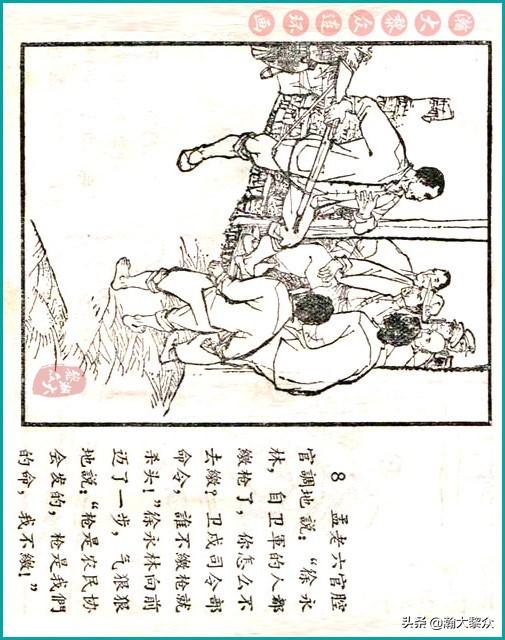 瀚大黎众连环画
8 孟老六官腔
官調地說：“徐永
林，自卫軍的人都
缴枪了，你怎么不
去缴？卫戍司令部
命令，誰不缴枪就
杀头！”徐永林向前
迈了一步，气狠狠
地說：“枪是农民协
会发的，枪是我們
的命，我不缴！”
瀚大黎众
头条 @瀚大黎众